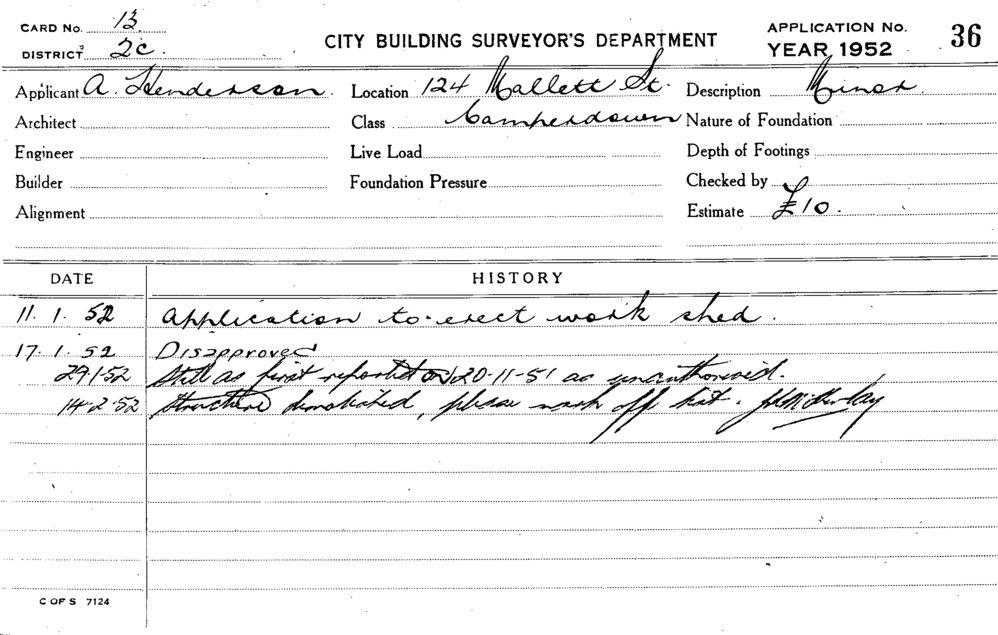 CARD No. 13
DISTRICT 2c.
CITY BUILDING SURVEYOR'S DEPARTMENT
APPLICATION No. 36
YEAR 1952
Applicant A. Henderson. Location 124 Mallett St. Description Minor
Architect Class Camperdown Nature of Foundation
Engineer Live Load Depth of Footings
Builder Foundation Pressure Checked by
Alignment Estimate £10.
DATE HISTORY
11. 1. 52 Application to erect work shed.
17. 1. 52 Disapproved
29.1.52 Still as first reported on 20-11-51 as unauthorised.
14.2.52 Structure demolished, please mark off list.
C OF S 7124